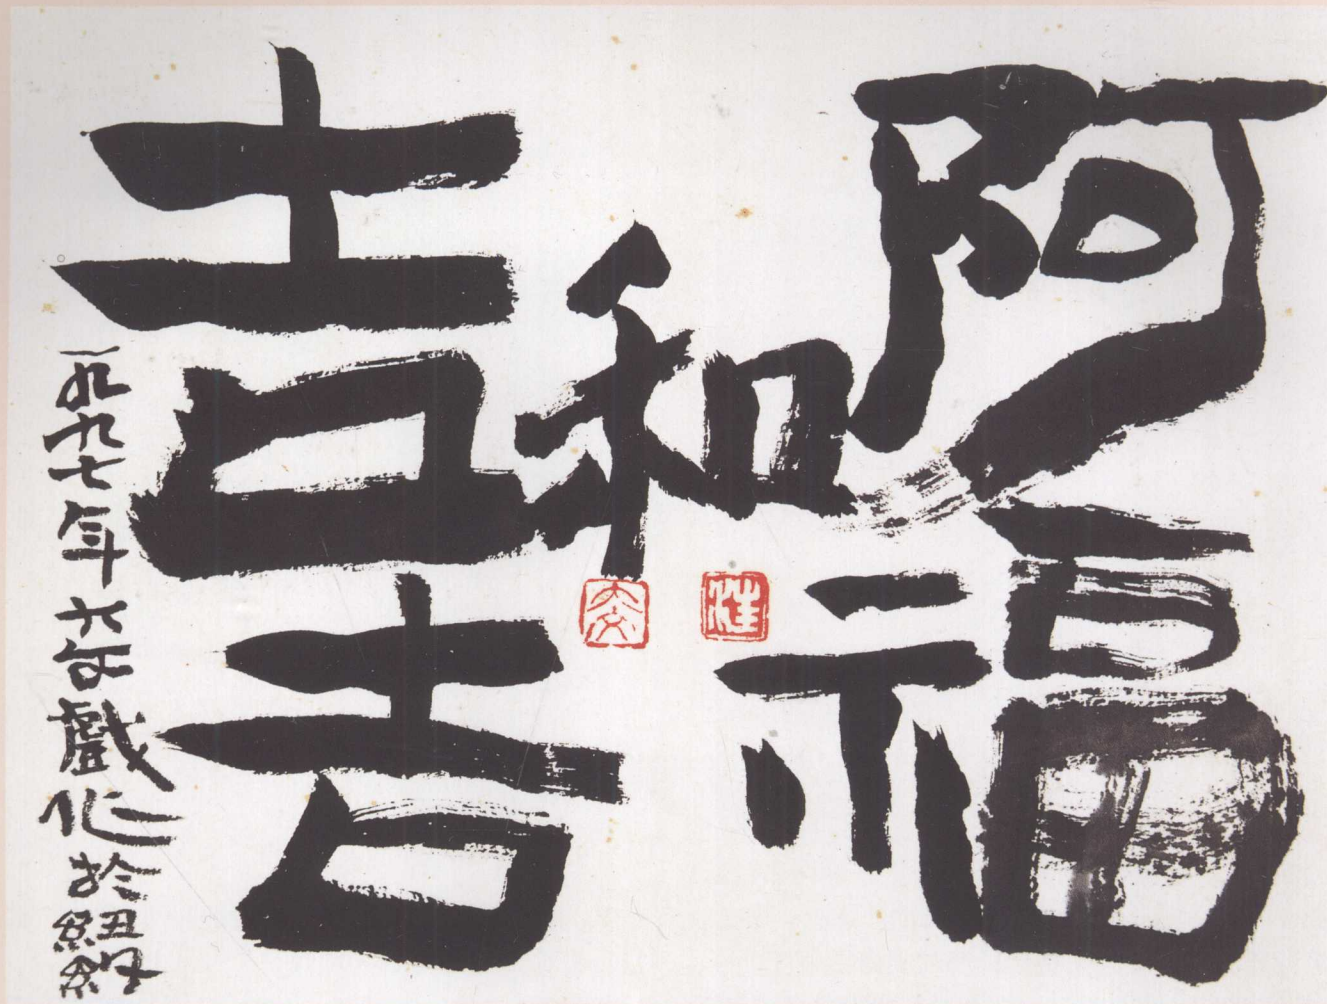 阿福
和
吉吉
一九九七年六 戲作於紐約